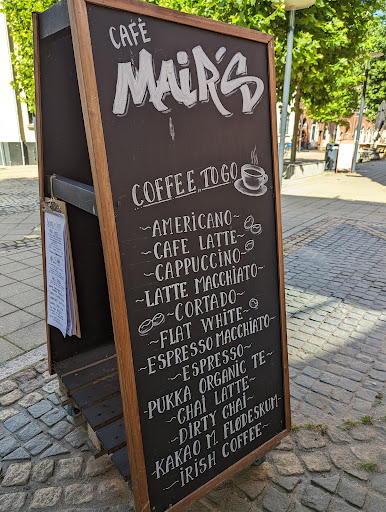 CAFÉ
MAIR'S
COFFEE TO GO
~AMERICANO~
~CAFE LATTE~
~CAPPUCCINO~
~LATTE MACCHIATO~
~CORTADO~
~FLAT WHITE~
~ESPRESSO MACCHIATO~
~ESPRESSO~
~PUKKA ORGANIC TE~
~CHAI LATTE~
~DIRTY CHAI~
~KAKAO M. FLØDESKUM~
~IRISH COFFEE~